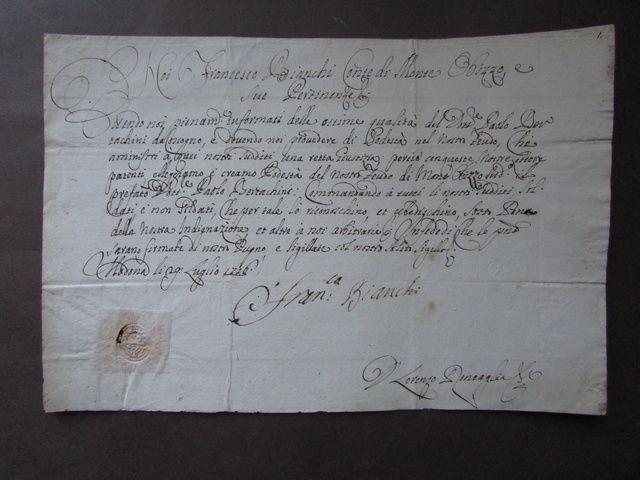 1.
Noi Francesco Bianchi Conte di Monte Obizzo, e
sue Pertinenze &
Essendo noi pienam.te informati delle ottime qualità del Paolo Ber
tachini da e dovendo noi provedere di Podestà nel Nostro Feudo, Che
aministri à quei nostri sudditi una retta giustizia, perciò con queste Nostre lettere
patenti elleggiamo, e creamo Podestà del Nostro Feudo di Monte Obizzo sud.o il
prefato Paolo Bertachini; Comandando à tutti li nostri sudditi, sol
dati, e non soldati, Che per tale lo riconoschino, et ubedischino, sotto Pena
della Nostra Indignazione, et altro à noi arbitrario; In fede di che le pnti
saranno firmate di nostro Pugno, e sigillate col nostro solito Sigillo
Modena li 29 Luglio
Fran.ca Bianchi
Lorenzo